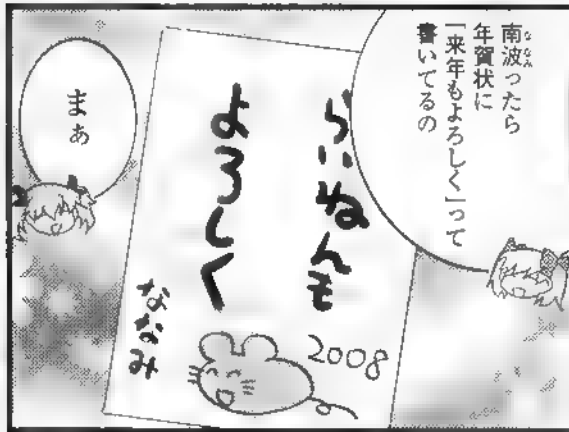 南波ったら
年賀状に
「来年もよろしく」って
書いてるの
らいねんも
よろしく
ななみ
2008
まぁ